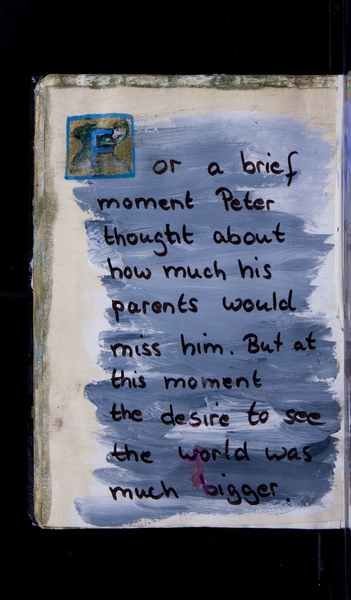 For a brief
moment Peter
thought about
how much his
parents would
miss him. But at
this moment
the desire to see
the world was
much bigger.